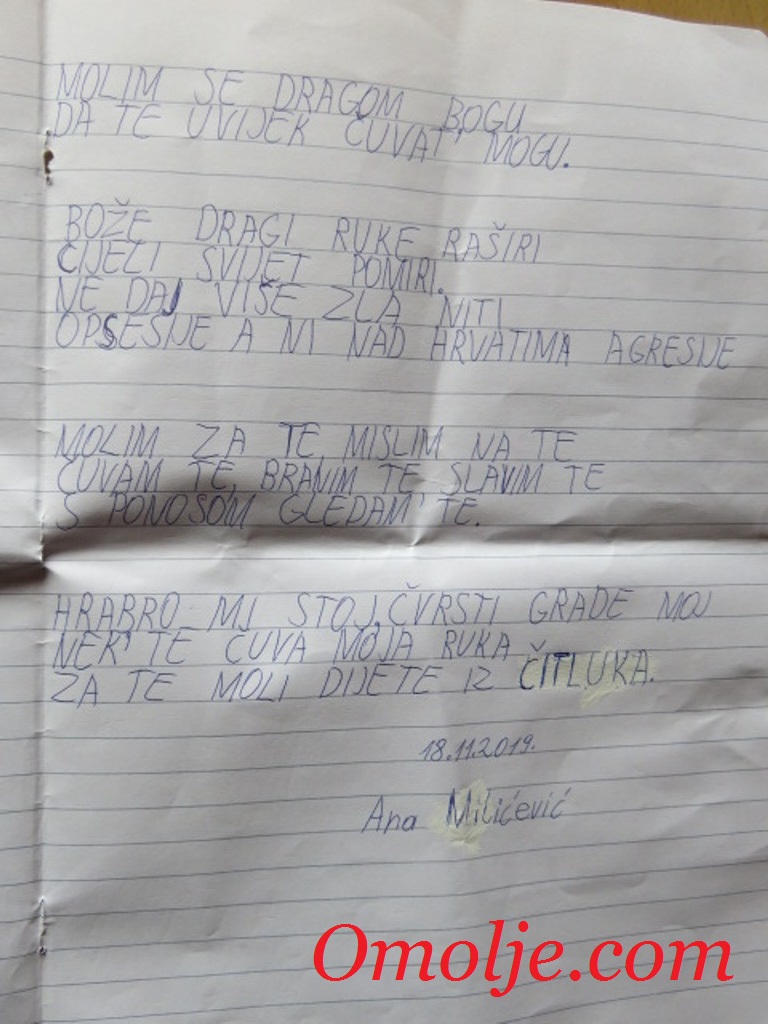 MOLIM SE DRAGOM BOGU
DA TE UVIJEK ČUVAT' MOGU.
BOŽE DRAGI RUKE RAŠIRI
CIJELI SVIJET POMIRI.
NE DAJ VIŠE ZLA NITI
OPSESIJE A NI NAD HRVATIMA AGRESIJE
MOLIM ZA TE, MISLIM NA TE
ČUVAM TE, BRANIM TE, SLAVIM TE
S PONOSOM GLEDAM TE.
HRABRO MI STOJ, ČVRSTI GRADE MOJ
NEK' TE ČUVA MOJA RUKA
ZA TE MOLI DIJETE IZ ČITLUKA.
18.11.2019.
Ana Milićević
Omolje.com